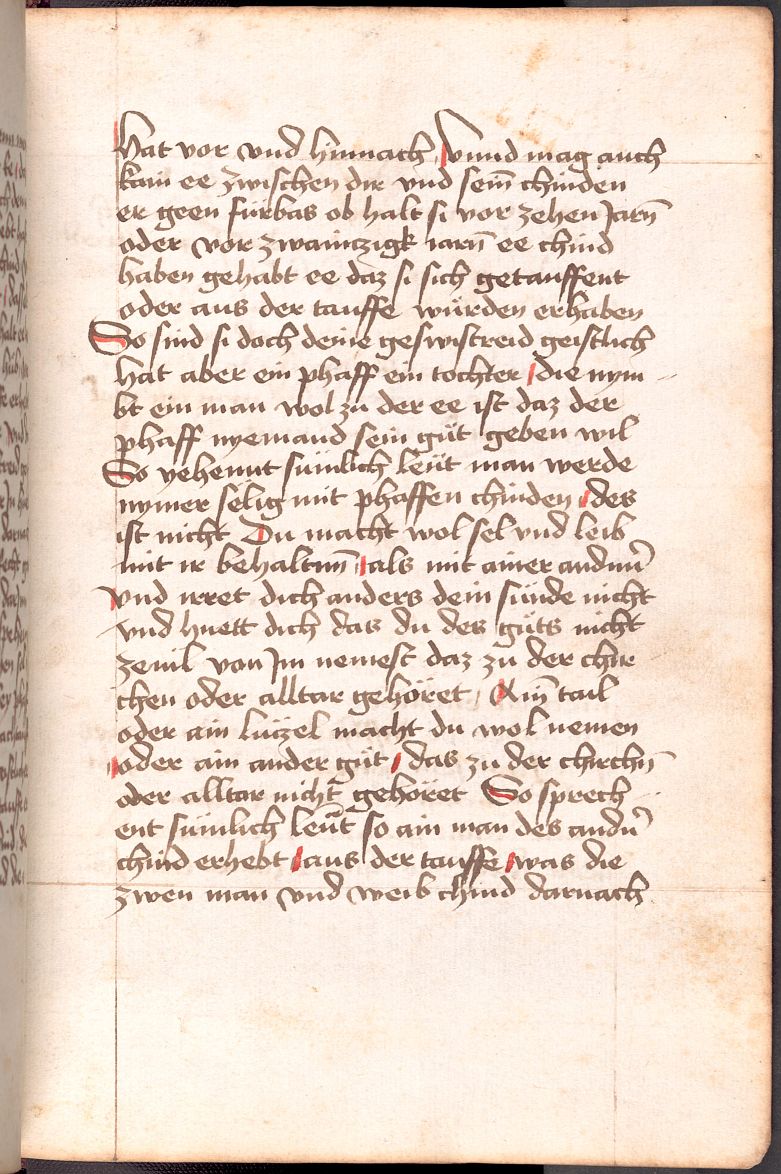 hat vor vnd hinnach / Vnnd mag auch
kain ee zwischen dir vnd sein̄ chinden
er geen fürbas ob halt si vor zehen Jarn̄
oder vor zwainczigk iarn̄ ee chind
haben gehabt ee daz si sich getauffent
oder aus der tauffe würden erhaben
So sind si doch deine geswistreid geistlich
hat aber ein phaff ein tochter / die nym
bt ein man wol zu der ee ist daz der
phaff nyemand sein güt geben wil
So yehennt sümlich leüt man werde
nymer sëlig mit phaffen chinden / des
ist nicht Du macht wol sel vnd leib
mit ir behaltnn̄ / als mit ainer andnn̄
vnd irret dich anders dein sünde nicht
vnd huett dich das du des güts nicht
zeuil von Im nemest daz zu der chir
chen oder alltar gehöret / Ain̄ tail
oder ain lüczel macht du wol nemen
oder ain ander güt / das zu der chirchn̄
oder alltar nicht gehöret So sprech
ent sümlich leüt so ain man des andn̄
chind erhebt / aus der tauffe / was die
zwen man vnd weib chind darnach